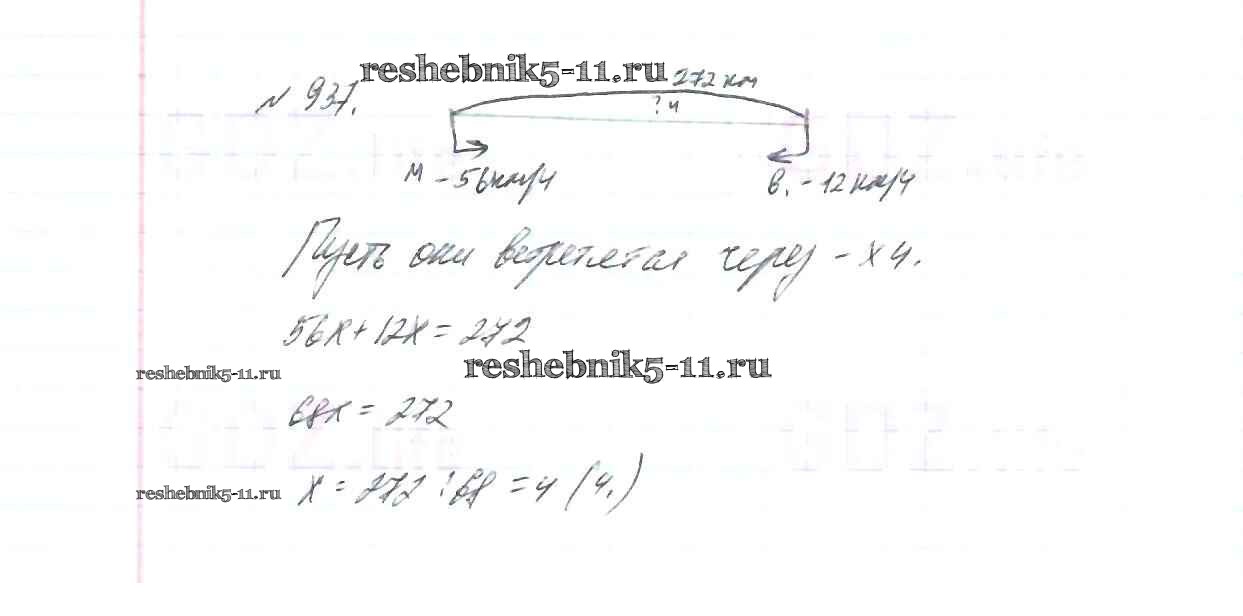 reshebnik5-11.ru
272 км
№ 937.
? ч
М - 56 км/ч
В. - 12 км/ч
Пусть они встретятся через - х ч.
56х + 12х = 272
reshebnik5-11.ru
reshebnik5-11.ru
68х = 272
х = 272 : 68 = 4 (ч.)
reshebnik5-11.ru